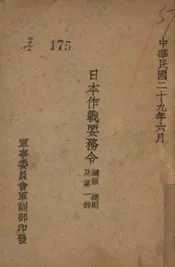 57
中華民國二十九年六月
175
日本作戰要務令
綱領 總則
及第一部
軍事委員會軍訓部印發